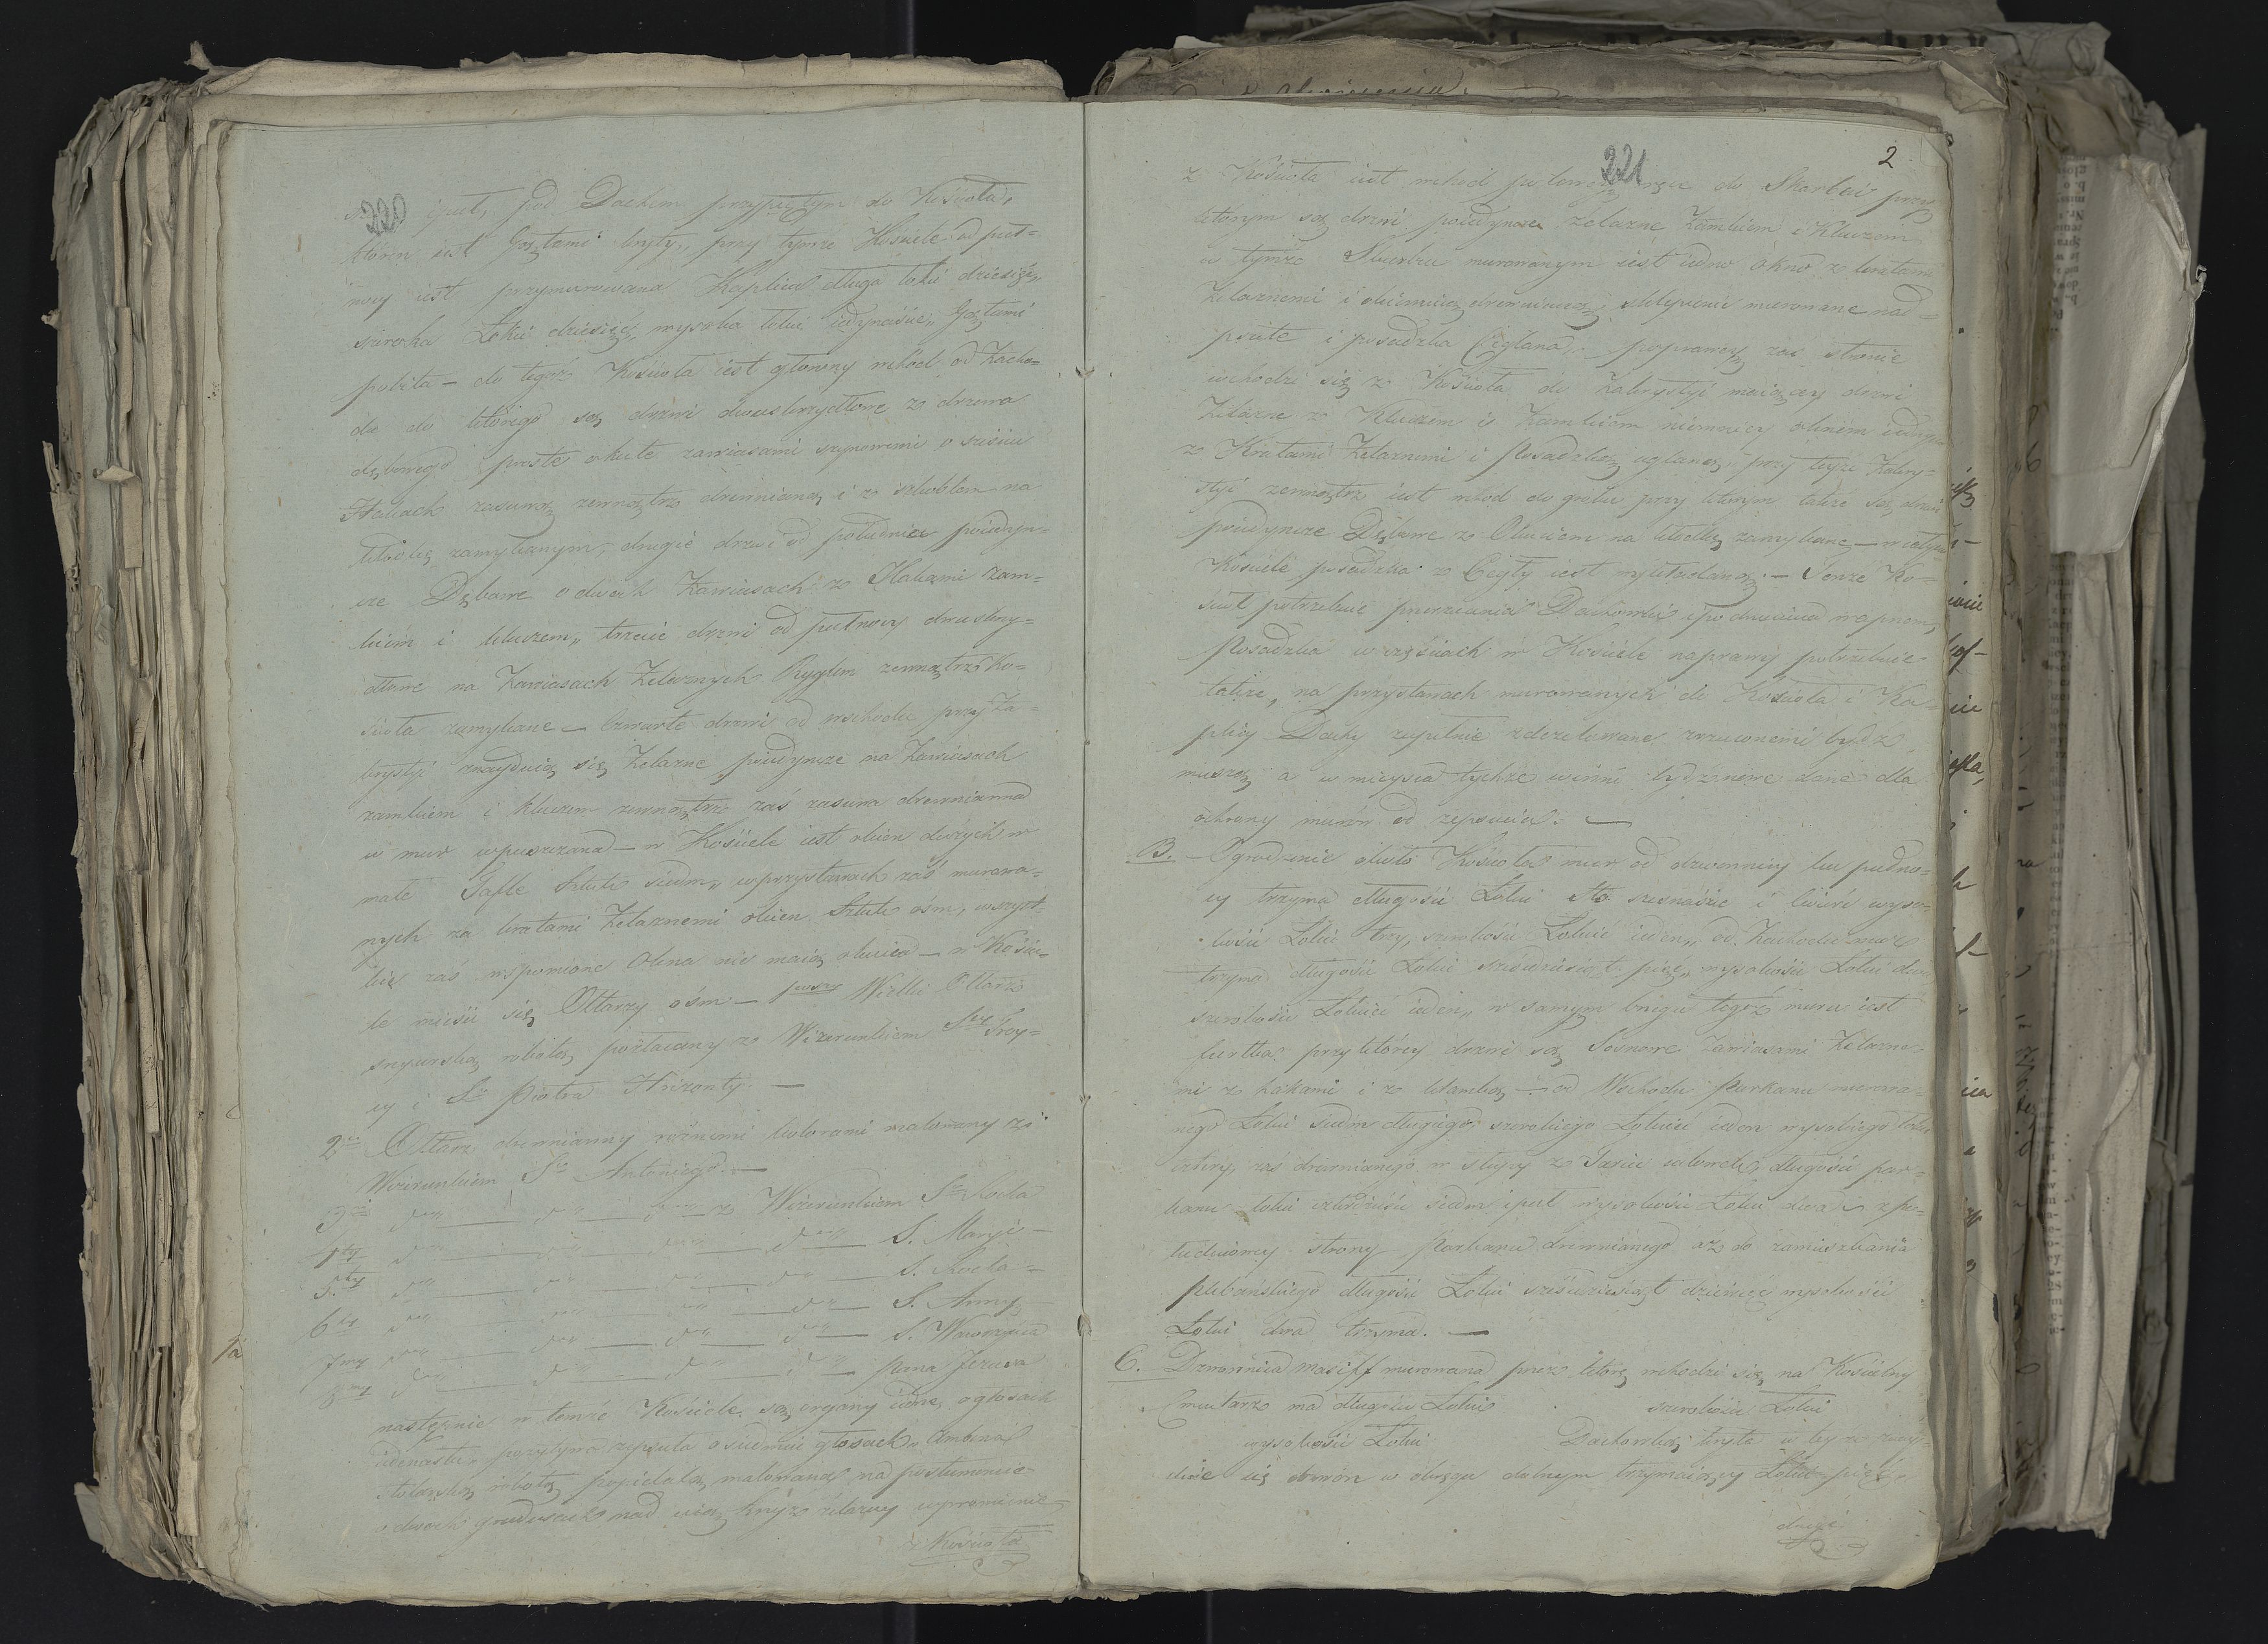 220
i puł, pod Dachem przypiętym do Kościoła,
który iest Gątami kryty, przy tymże Kościele od puł=
nocy iest przymurowana Kaplica długa łokci dziesięć,
szeroka Łokci dziesięć, wysoka łokci iedynaście, Gątami
pobita — do tegoż Kościoła iest główny wchód od Zacho=
du do którego są drzwi dwuskrzydłowe z drzewa
dębowego proste okute zawiasami szynowemi o sześciu
Hakach zasuwą zewnątrz drewnianą i z szkoblem na
kłódkę zamykanym, drugie drzwi od południa poiedyn=
cze Dębowe o dwóch Zawiasach z Hakami zam=
kiem i kluczem, trzecie drzwi od pułnocy dwuskrzy=
dłowe na Zawiasach Żelaznych Ryglem zewnątrz Ko=
ścioła zamykane — Czwarte drzwi od wschodu przy Za=
krystyi znayduią się Żelazne poiedyncze na Zawiasach
zamkiem i kluczem zewnątrz zaś zasuwa drewnianna
w mur wpuszczana — w Kościele iest okien dużych w
małe Tafle Sztuk siedm, w przystawach zaś murowa=
nych za kratami Żelaznemi okien Sztuk ośm, wszyst=
kie zaś wspomione Okna nie maią okucia — w Koście=
le mieści się Ołtarzy ośm — pierwszy Wielki Ołtarz
snycerską robotą pozłacany z Wizerunkiem Stey Troy=
cy i Sgo Piotra Horizonty. —
2gi Ołtarz drewnianny różnemi kolorami malowany z
Wizerunkiem Sgo Antoniego. —
3ci do — do — do z Wizerunkiem Sgo Rocha
4ty do — do — do — do — S. Maryi —
5ty do — do — do — do — S. Rocha —
6ty do — do — do — do — S. Anny
7my do — do — do — do — S. Wawrzyńca
8my do — do — do — do — Pana Jezusa
następnie w temże Kościele są organy iedne o głosach
iedenastu, pozytyw zepsuty o siedmiu głosach, Ambona
stolarską robotą popielato malowana na postumencie
o dwóch gradusach nad nią Krzyż żelazny w promienie
z Kościoła
221
2
z Kościoła iest wchód po lewey ręce do Skarbcu przy
którym są drzwi poiedyncze żelazne Zamkiem i Kluczem
w tymże Skarbcu murowanym iest iedno okno z kratami
Żelaznemi i okiennicą drewnianą, sklepienie murowane nad=
psute i posadzka Ceglana, po prawey zaś stronie
wchodzi się z Kościoła do Zakrystyi maiącey drzwi
Żelazne z Kluczem i Zamkiem niemniey oknem iednym
z Kratami Żelaznemi i Posadzką ceglaną, przy teyże Zakry=
styi zewnątrz iest wchód do grobu przy którym także są drzwi
poiedyncze Dębowe z Okuciem na kłódkę zamykane — w całym
Kościele posadzka z Cegły iest wykładana. — Tenże Ko=
ściół potrzebuie Dachówki i podrzucenia wapnem,
Posadzka w częściach w Kościele naprawy potrzebuie
także, na przystawach murowanych do Kościoła i Ka=
plicy Dachy zupełnie zdezelowane zrzuconemi bydź
muszą a w mieysca tychże winni bydź nowe dane dla
ochrony murów od zepsucia. —
B. — Ogrodzenie około Kościoła mur od dzwonnicy ku pułno=
cy trzyma długości Łokci Sto szesnaście i ćwierć wyso=
kości Łokci trzy, szerokości Łokieć ieden, od Zachodu mur
trzyma długości Łokci sześćdziesiąt pięć, wysokości Łokci dwa
szerokości Łokieć ieden, w samym brzegu tegoż muru iest
furtka przy którey drzwi są Sosnowe Zawiasami Żelazne=
mi z hakami i z klamką — od Wschodu Parkanu murowa=
nego Łokci siedm długiego, szerokiego Łokieć ieden wysokiego łokci
cztery, zaś drewnianego w słupy z Tarcic calówek długości par=
kanu łokci czterdzieści siedm i puł wysokości Łokci dwa — z po=
łudniowey strony Parkanu drewnianego aż do zamieszkania
plebańskiego długości Łokci sześćdziesiąt dziewięć wysokości
Łokci dwa trzyma. —
C. Dzwonnica masiff murowana przez którą wchodzi się na Kościelny
Cmentarz ma długości Łokci szerokości Łokci
wysokości Łokci Dachówką kryta w tey znay=
duie się dzwon w obięciu dolnym trzymaiący Łokci pięć
drugi